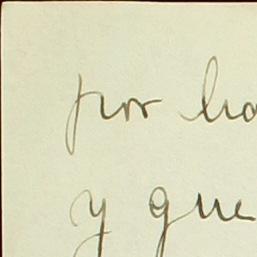 por ha
y que